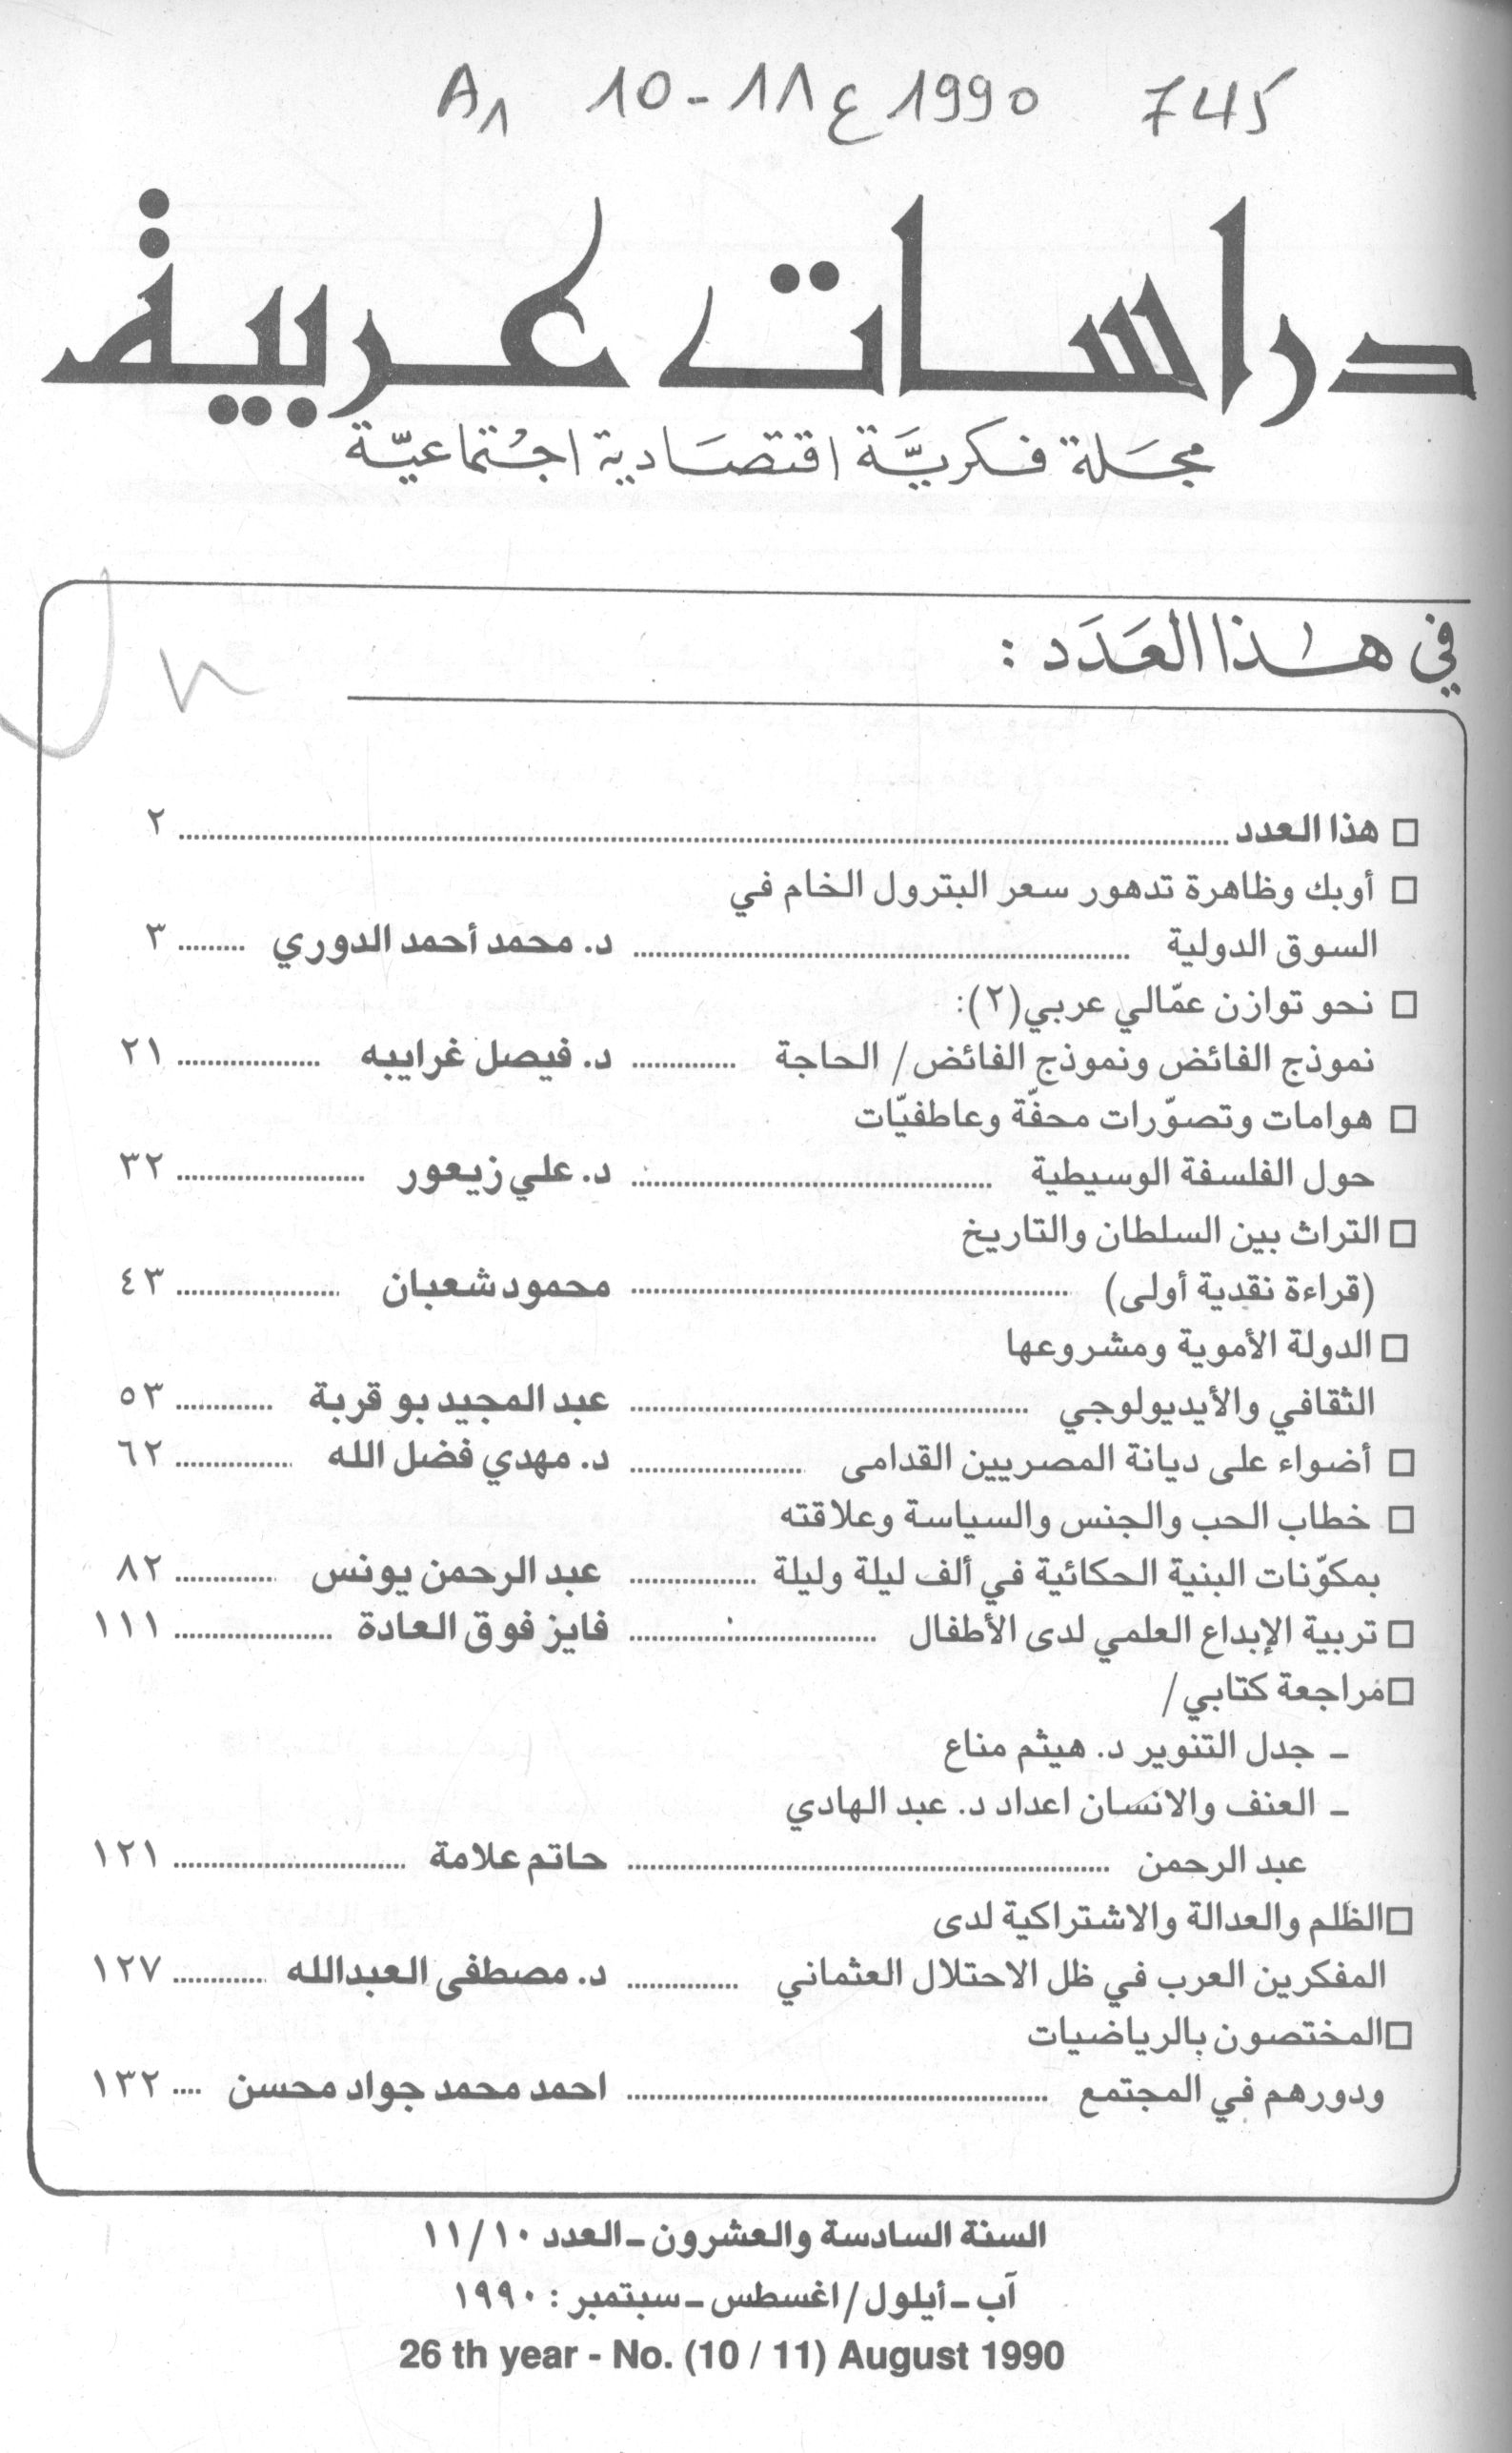 A1 10-11 ع 1990 745
دراسات عربية
مجَلة فكريَّة اقتصَادية اجْتماعيّة
في هٰذا العَدَد :
□ هذا العدد ........ ٢
□ أوبك وظاهرة تدهور سعر البترول الخام في
السوق الدولية ........ د. محمد أحمد الدوري ........ ٣
□ نحو توازن عمّالي عربي (٢):
نموذج الفائض ونموذج الفائض/ الحاجة ........ د. فيصل غرايبه ........ ٢١
□ هوامات وتصوّرات محفّة وعاطفيّات
حول الفلسفة الوسيطية ........ د. علي زيعور ........ ٣٢
□ التراث بين السلطان والتاريخ
(قراءة نقدية أولى) ........ محمود شعبان ........ ٤٣
□ الدولة الأموية ومشروعها
الثقافي والأيديولوجي ........ عبد المجيد بو قربة ........ ٥٣
□ أضواء على ديانة المصريين القدامى ........ د. مهدي فضل الله ........ ٦٢
□ خطاب الحب والجنس والسياسة وعلاقته
بمكوّنات البنية الحكائية في ألف ليلة وليلة ........ عبد الرحمن يونس ........ ٨٢
□ تربية الإبداع العلمي لدى الأطفال ........ فايز فوق العادة ........ ١١١
□ مراجعة كتابي/
ـ جدل التنوير د. هيثم مناع
ـ العنف والانسان اعداد د. عبد الهادي
عبد الرحمن ........ حاتم علامة ........ ١٢١
□ الظلم والعدالة والاشتراكية لدى
المفكرين العرب في ظل الاحتلال العثماني ........ د. مصطفى العبدالله ........ ١٢٧
□ المختصون بالرياضيات
ودورهم في المجتمع ........ احمد محمد جواد محسن .... ١٣٢
السنة السادسة والعشرون ـ العدد ١١/١٠
آب ـ أيلول / اغسطس ـ سبتمبر : ١٩٩٠
26 th year - No. (10 / 11) August 1990